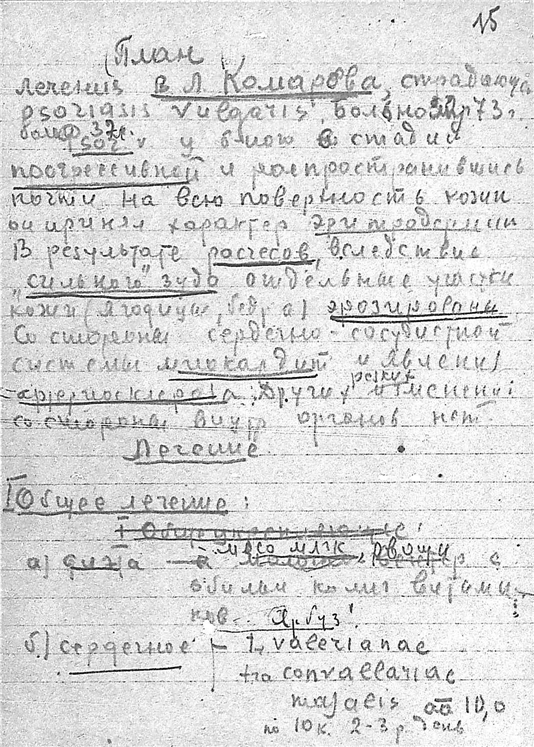 15
План
лечения В Л Комарова, страдающ.
psoriasis vulgaris, Больной 73 г.
болен 37 л.
Psor. v у б-ного в стадии
прогрессивной и распространившись
почти на всю поверхность кожи
принял характер эритродермии
В результате расчесов, вследствие
"сильного" зуда отдельные участки
кожи (ягодицы, бедра) эрозированы
Со стороны сердечно-сосудистой
системы миокардит и явления
резких
артериосклероза. Других изменений
со стороны внутр органов нет
Лечение
I Общее лечение:
I Общеукрепляющие:
- мясо мягк, овощи
а) диэта
обильн колич витами-
нов. Арбуз!
б) сердечное - t-ra valerianae
t-ra convallariae
majalis aa 10,0
по 10 к. 2-3 р. день